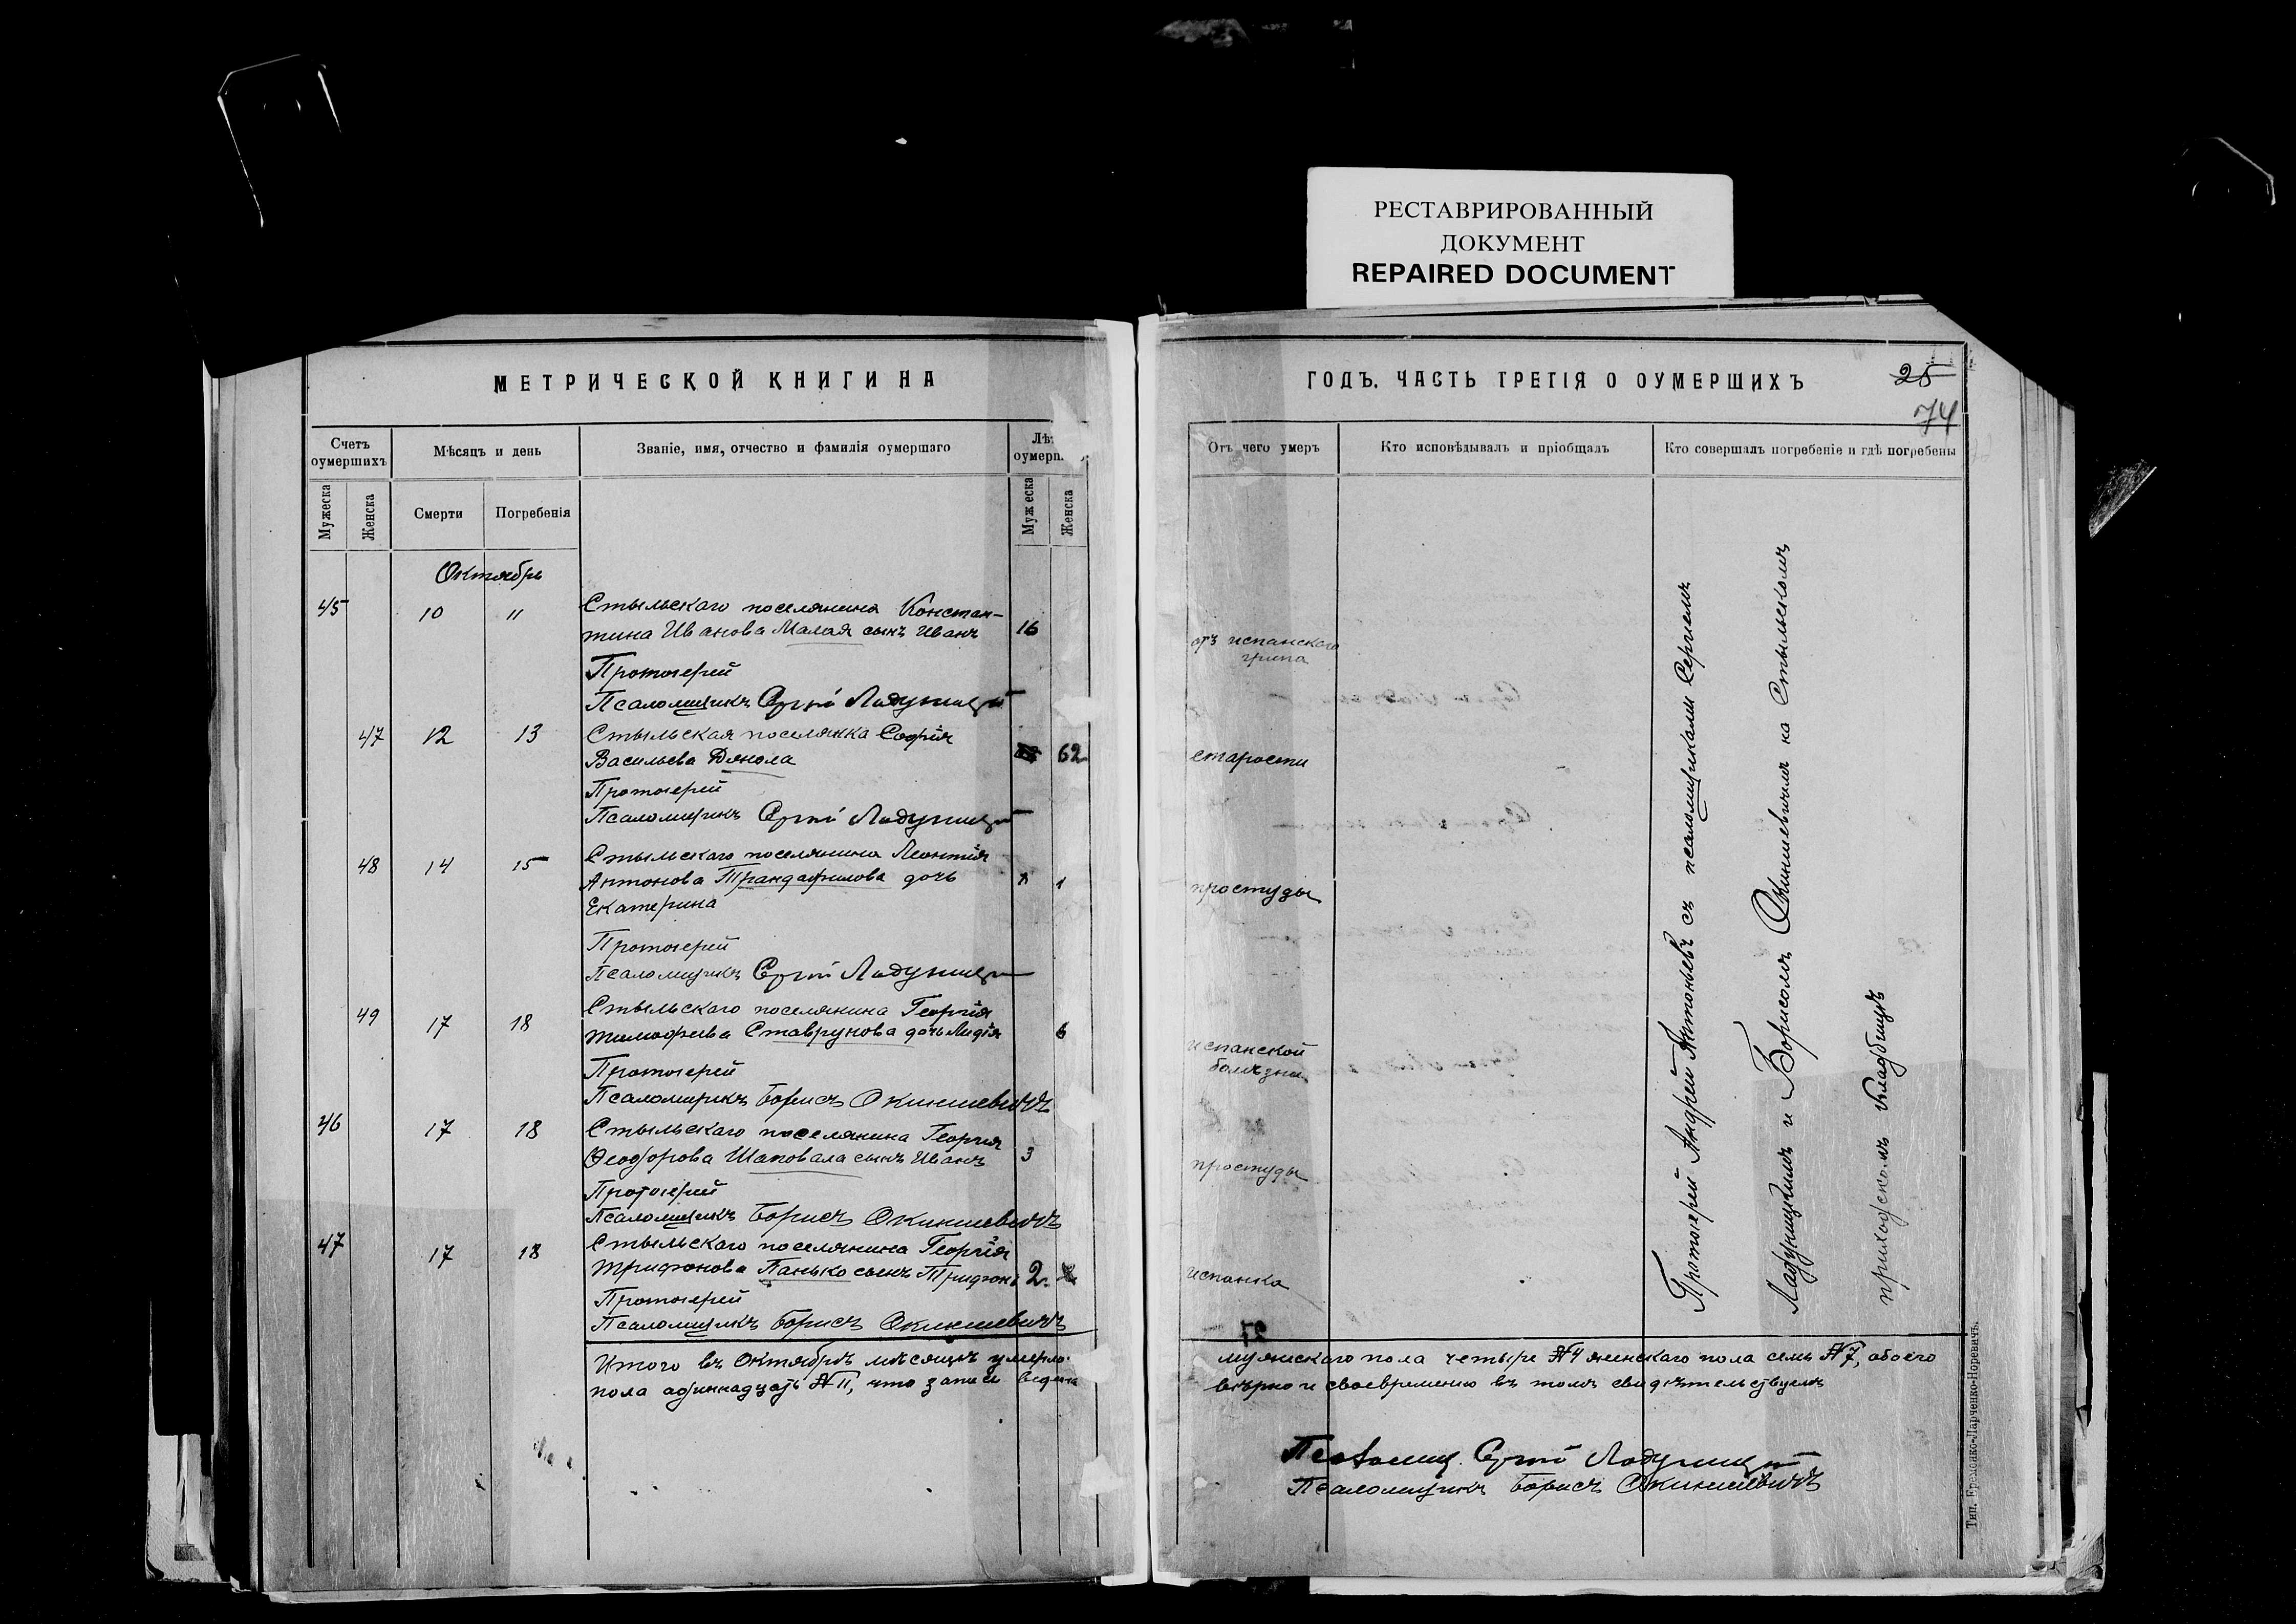 РЕСТАВРИРОВАННЫЙ
ДОКУМЕНТ
REPAIRED DOCUMENT
МЕТРИЧЕСКОЙ КНИГИ НА
Счетъ оумершихъ
Мѣсяцъ и день
Званіе, имя, отчество и фамилія оумершаго
Лѣ
оумерш
Мужеска
Женска
Смерти
Погребенія
Мужеска
Женска
Октябрь
45 10 11 Стыльскаго поселянина Констан-
тина Иванова Малая сынъ Иванъ 16
Протоіерей
Псаломщикъ Сергій Ладухицъ
47 12 13 Стыльская поселянка Софія
Васильева Дянола 62
Протоіерей
Псаломщикъ Сергій
48 14 15 Стыльскаго поселянина Леонтія
Антонова Трандафилова дочь 1
Екатерина
Протоіерей
Псаломщикъ Сергій
49 17 18 Стыльскаго поселянина Георгія
Тимофеева Ставрукова дочь Лидія 6
Протоіерей
Псаломщикъ Борисъ Окиншевичъ
46 17 18 Стыльскаго поселянина Георгія
Ѳеодорова Шаповала сынъ Иванъ 3
Протоіерей
Псаломщикъ Борисъ Окиншевичъ
47 17 18 Стыльскаго поселянина Георгія
Трифонова Панько сынъ Трифонъ 2
Протоіерей
Псаломщикъ Борисъ Окиншевичъ
Итого въ Октябрѣ мѣсяцѣ умерло
пола одиннадцать № 11, что записи ведены
ГОДЪ. ЧАСТЬ ТРЕТІЯ О ОУМЕРШИХЪ
25
74
Отъ чего умеръ
Кто исповѣдывалъ и пріобщалъ
Кто совершалъ погребеніе и гдѣ погребены
отъ испанскаго
грипа
старости
простуды
испанской
болѣзни
простуды
испанка
Протоіерей Андрей Антоньевъ съ псаломщиками Сергіемъ
и Борисомъ Окиншевичемъ на Стыльскомъ
приходскомъ кладбищѣ
мужескаго пола четыре № 4 женскаго пола семь № 7, обоего
вѣрно и своевременно въ томъ свидѣтельствуемъ
Псаломщ. Сергій
Псаломщикъ Борисъ Окиншевичъ
Тип. Еремонко-Ларченко-Норевичъ.